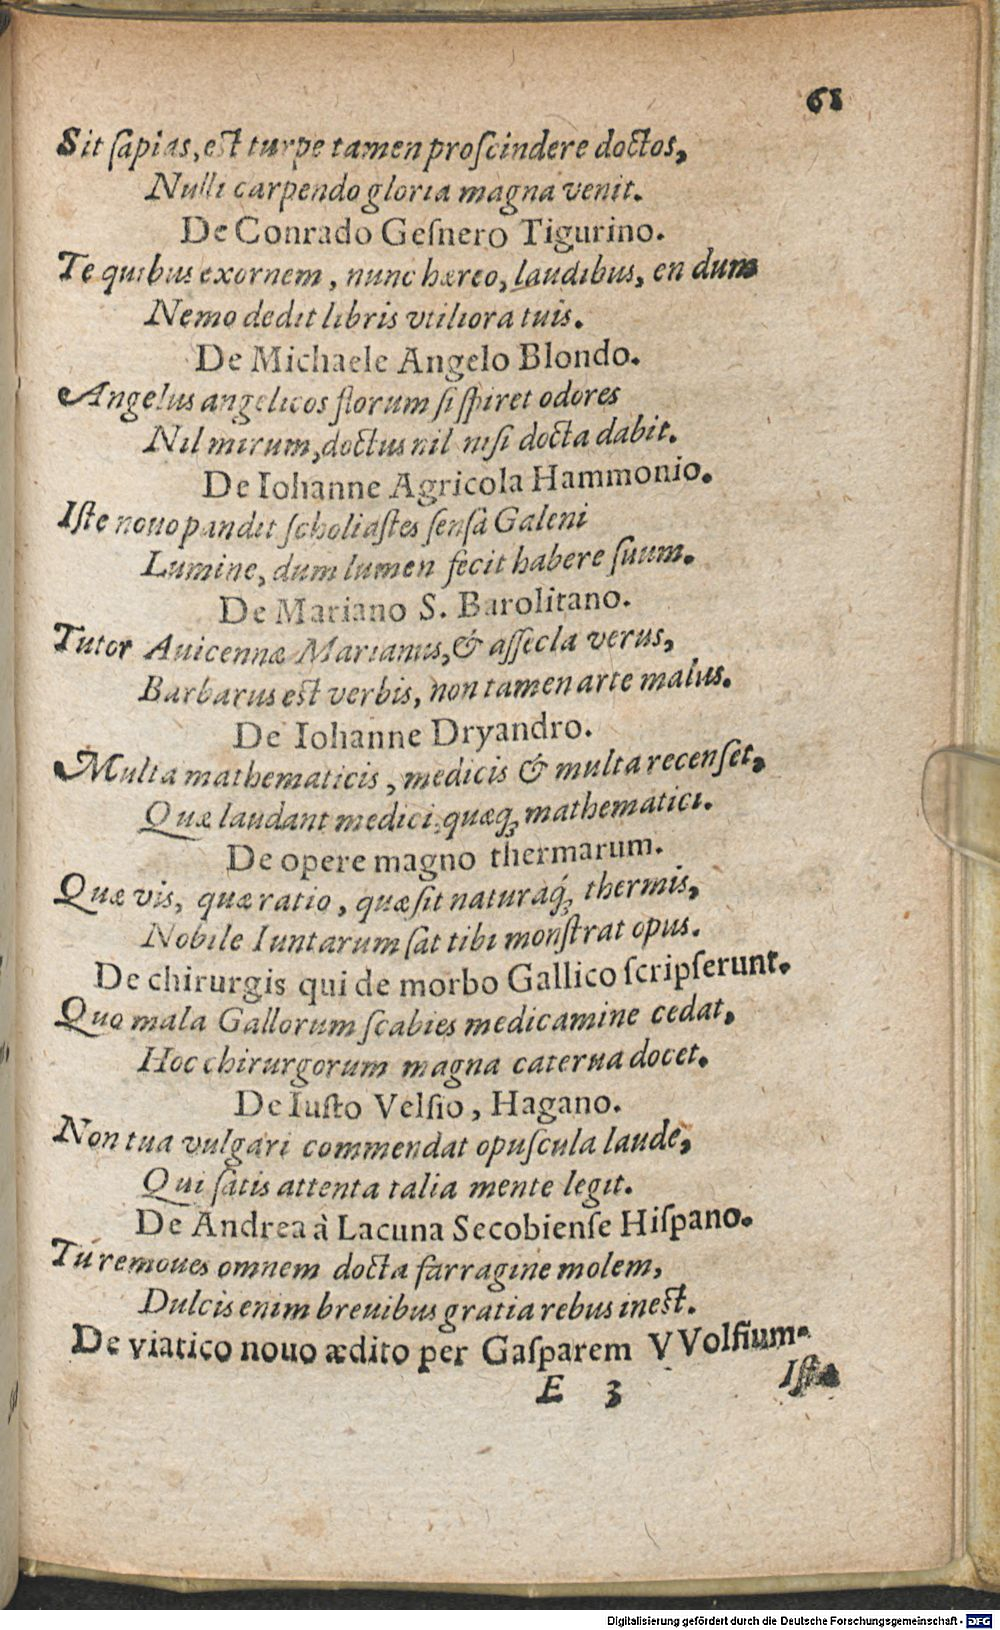 68
Sit ſapias, est turpe tamen proſcindere doctos,
Nulli carpendo gloria magna venit.
De Conrado Geſnero Tigurino.
Te quibus exornem, nunc hæreo, laudibus, en dum
Nemo dedit libris vtiliora tuis.
De Michaele Angelo Blondo.
Angelus angelicos florum ſi ſpiret odores
Nil mirum, doctus nil niſi docta dabit.
De Iohanne Agricola Hammonio.
Iſte nouo pandit ſcholiaſtes ſenſa Galeni
Lumine, dum lumen fecit habere ſuum.
De Mariano S. Barolitano.
Tutor Auicennæ Marianus, & aſſecla verus,
Barbarus est verbis, non tamen arte malus.
De Iohanne Dryandro.
Multa mathematicis, medicis & multa recenſet,
Quæ laudant medici, quæq; mathematici.
De opere magno thermarum.
Quæ vis, quæ ratio, quæ ſit naturaq́; thermis,
Nobile Iuntarum ſat tibi monſtrat opus.
De chirurgis qui de morbo Gallico ſcripſerunt.
Quo mala Gallorum ſcabies medicamine cedat,
Hoc chirurgorum magna caterua docet.
De Iuſto Velſio, Hagano.
Non tua vulgari commendat opuſcula laude,
Qui ſatis attenta talia mente legit.
De Andrea à Lacuna Secobienſe Hiſpano.
Tu remoues omnem docta farragine molem,
Dulcis enim breuibus gratia rebus inest.
De viatico nouo ædito per Gaſparem VVolfium.
E 3
Iſte
Digitalisierung gefördert durch die Deutsche Forschungsgemeinschaft - DFG